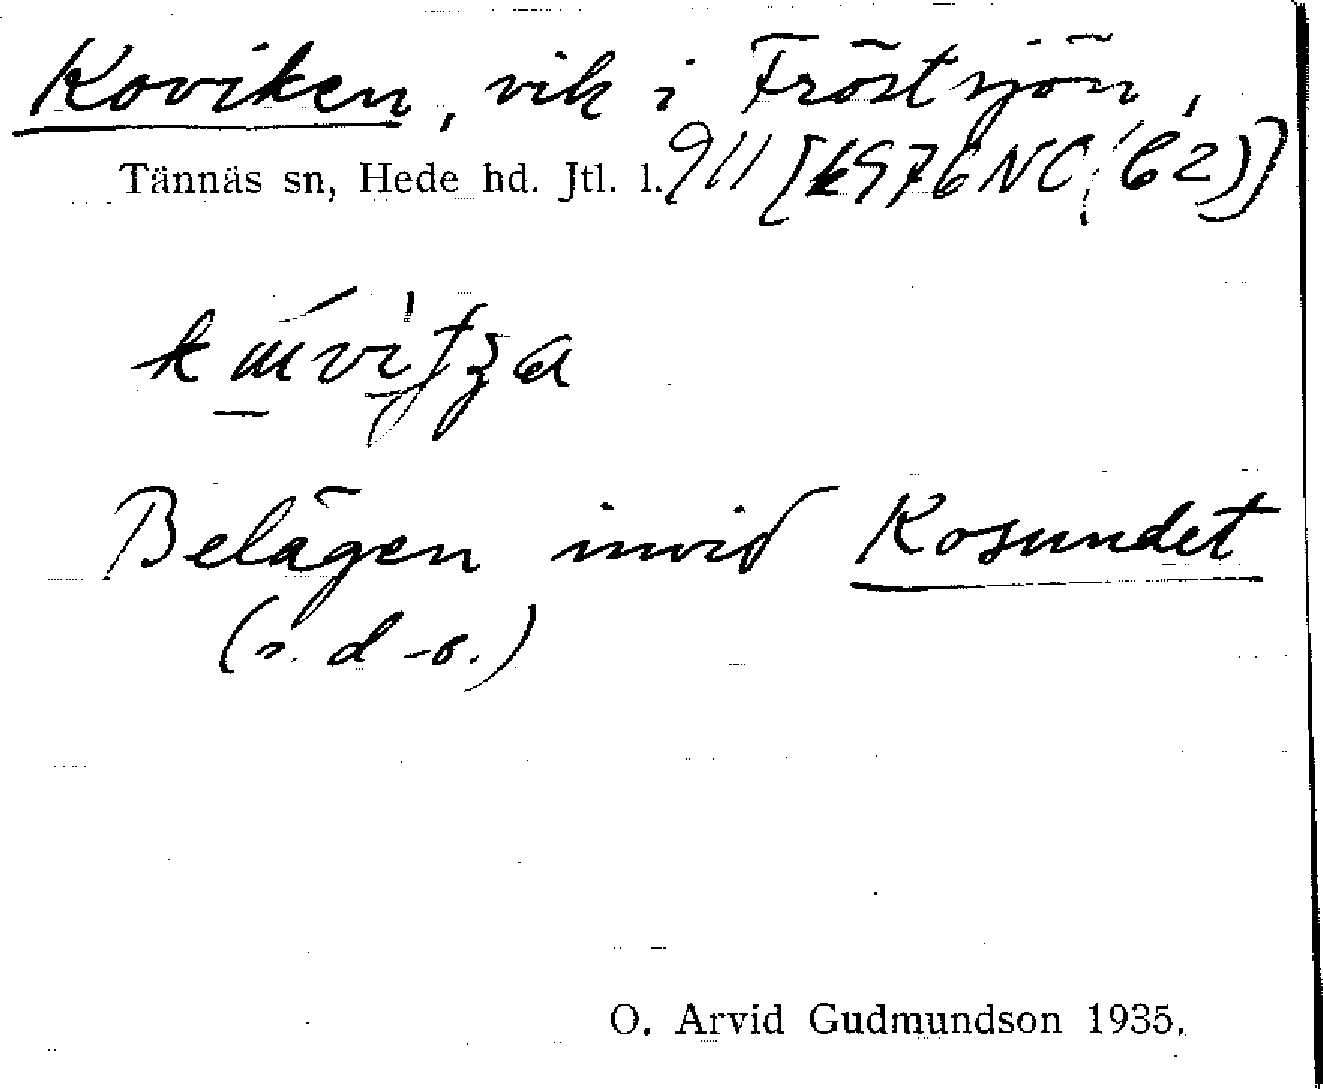 Koviken, vik i Fröstsjön,
Tännäs sn, Hede hd. Jtl. l. 911
Belägen invid Kosundet
(s. d-o.)
O. Arvid Gudmundson 1935.